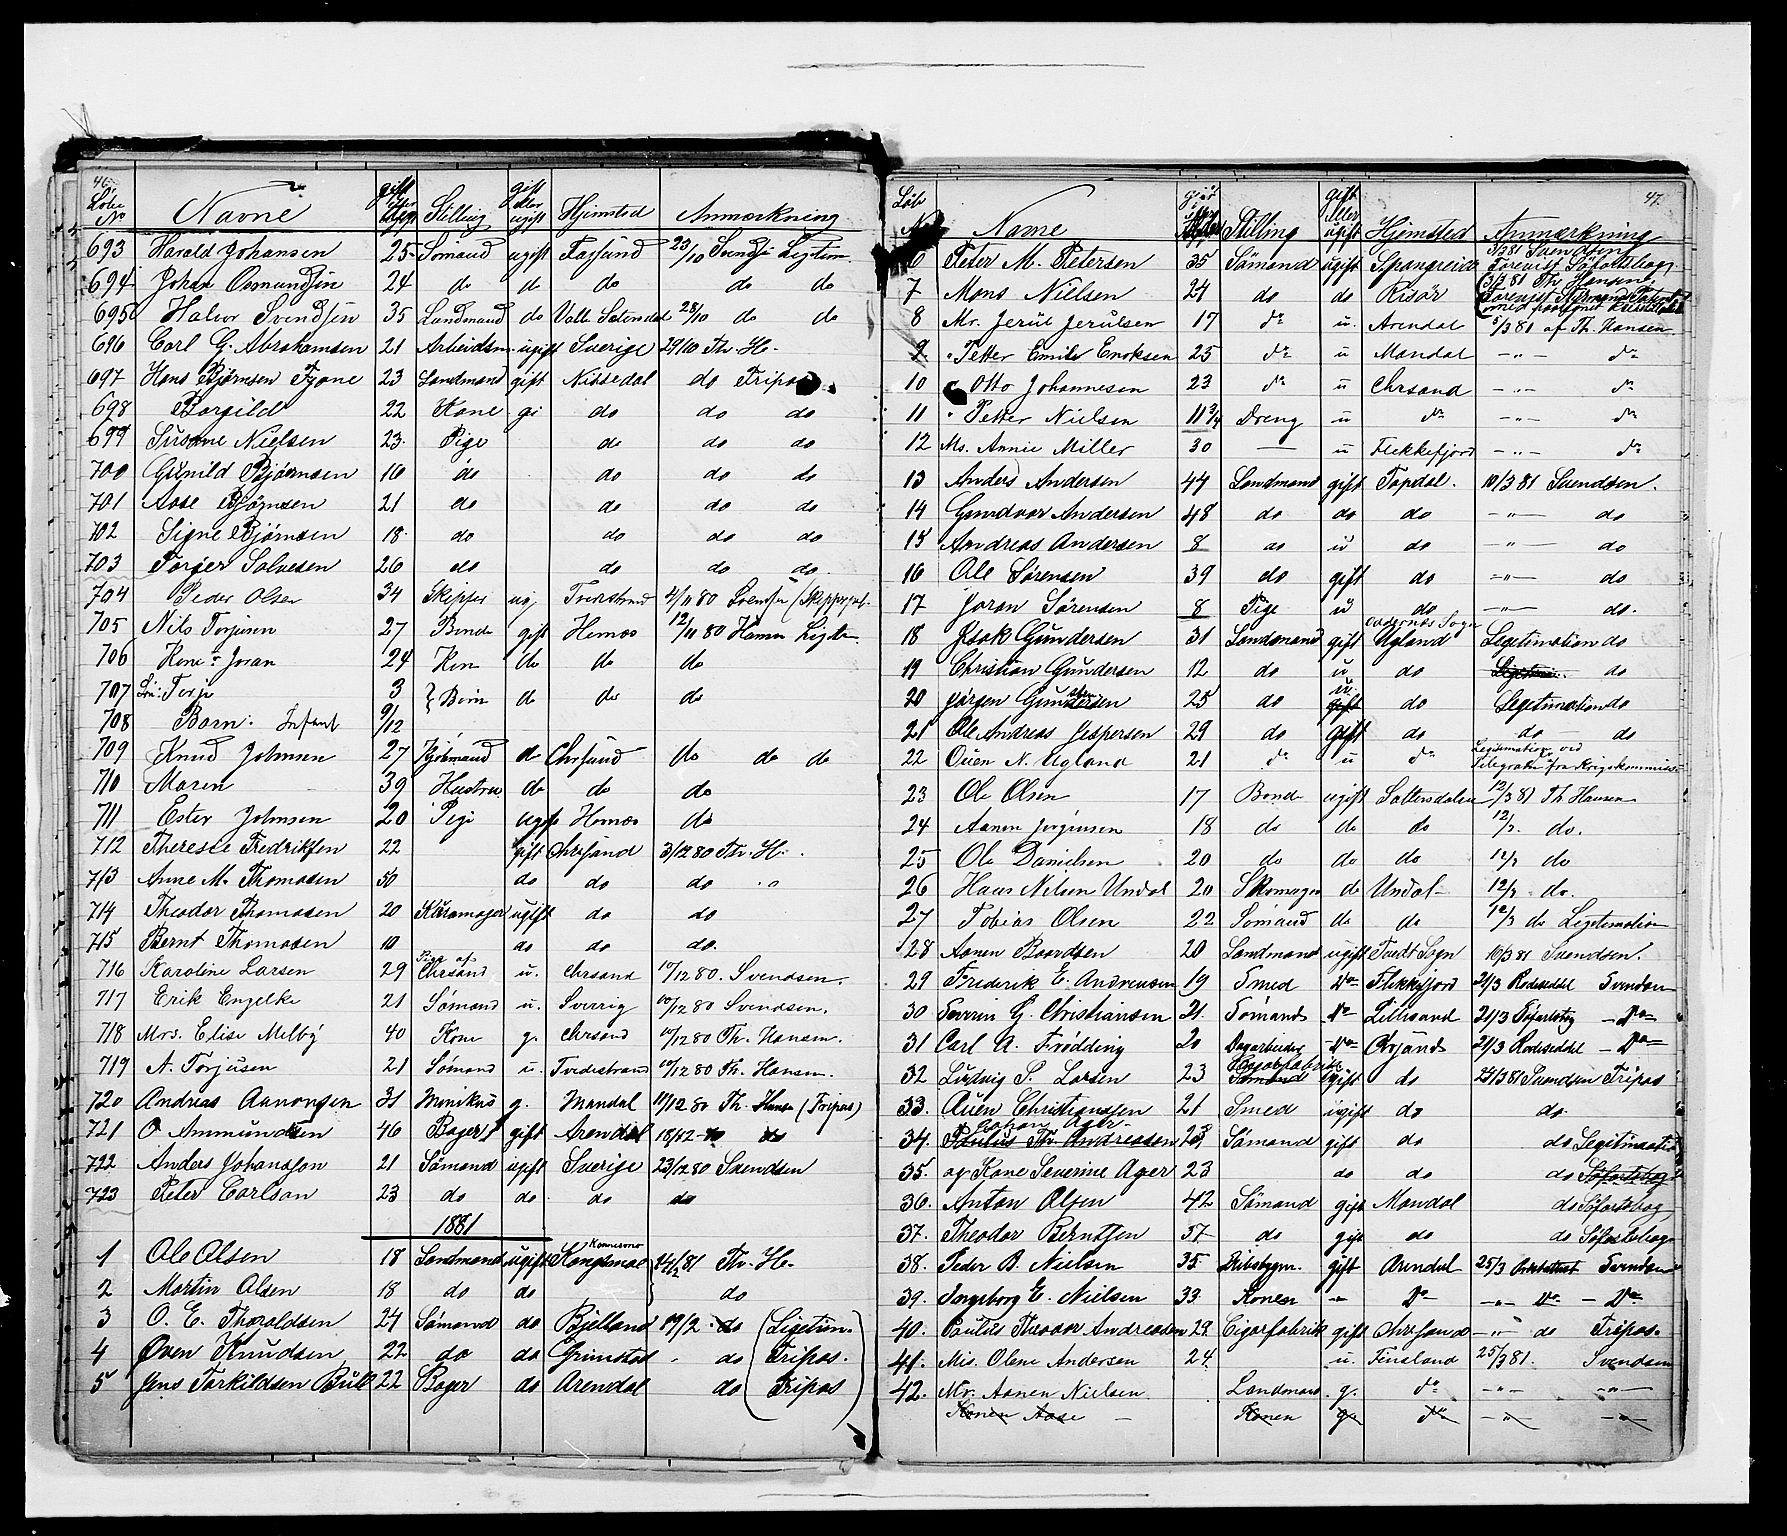 46.
Løbe No Navne gift eller Alder Stilling gift eller ugift Hjemsted Anmærkning
693 Harald Johansen 25 Sömand ugift Farsund 23/10 Svendsen Legitm.
694 Johan Osmundsen 24 do do do do do
695 Halvor Svendsen 35 Landmand do Valle Sætersdal 28/10 do do
696 Carl G. Abrahamsen 21 Arbeidsm. ugift Sverige 29/10 Th. H.
697 Hans Bjørnsen Tjone 23 Landmand gift Nissedal do Tripos
698 Borgild 22 Kone gi do do do
699 Susanne Nielsen 23 Pige do do do
700 Gunild Bjørnsen 16 do do do do
701 Aase Bjørnsen 21 do do do do
702 Signe Bjørnsen 18 do do do do
703 Torger Salvesen 26 do do do do
704 Peder Olsen 34 Skipper ug Tvedestrand 2/11 80 Svendsen
705 Nils Torjusen 27 Bonde gift Hornæs 12/11 80 Hansen Legitm
706 Kone: Joran 24 Kon do do do
707 Søn: Torje 3 } Börn do do do
708 Barn: Infant 9/12
709 Knud Johnsen 27 Kjöbmand do Chrsand do do do
710 Maren 39 Hustru do do do
711 Ester Johnsen 20 Pige ugift Hornæs do
712 Therese Fredriksen 22 gift Chrsand 3/12 80 Th. H.
713 Anne M. Thomasen 50 do do do "
714 Theodor Thomasen 20 ugift do do
715 Bernt Thomasen 10 do do do.
716 Karoline Larsen 29 Pige af Chrsand u. Chrsand 10/12 80. Svendsen.
717 Erik Engelke 21 Sömand u. Sverrig 10/12 80 Svendsen.
718 Mrs. Elise Melby 40 Kone g. Chrsand 10/12 80 Th. Hansen.
719 A. Torjusen 21 Sömand u. Tvedestrand 10/12 80 Th. Hansen.
720 Andreas Aanonsen 31 Minikus g. Mandal 11/12 80 Th. Hansen (Tripos)
721 O Ammundsen 46 Bager gift Arendal 18/12 do do
722 Anders Johansson 21 Sömand ugift Sverige 23/12 80 Svendsen
723 Peter Carlson 23 do do do do
1881
1 Ole Olsen 18 Landmand ugift Kongsmoe 14/2 81 Th. H.
2 Martin Olsen 18 do do do
3 O. E. Thoraldsen 24 Sömand do Bjelland 19/2 do (Ligetim.
4 Oven Knudsen 22 do do Grimstad do Tripos.
5 Jens Torkildsen Bull 22 Bager do Arendal do (Tripos)
47.
Løb No Navne Alder Stilling gift eller ugift Hjemsted Anmærkning
6 Peter M. Petersen 35 Sömand ugift Spangreid 3/3 81 Svendsen Forevist Söfartsbog
7 Mons Nielsen 24 do do Risör 3/3 81 Th. Hansen
8 Mr. Jerul Jerulsen 17 do u. Arendal 5/3 81 af Th. Hansen
9 " Petter Emil Enoksen 25 do u Mandal — " — do
10 " Otto Johannesen 23 do u Chrsand — " — do
11 " Petter Nielsen 11 3/4 Dreng u do — " — do
12 Ms. Annie Miller 30 — u Flekkefjord — " — do
13 Anders Andersen 44 Landmand gift Topdal. 10/3 81 Svendsen.
14 Gundvor Andersen 48 do do do — " — do
15 Andreas Andersen 8 do u do — " — do
16 Ole Sørensen 39 do gift do — " — do
17 Joran Sörensen 8 Pige u do — " — do.
18 Isak Gundersen 31 Landmand gift Ugland Legitimation do
19 Christian Gundersen 12 do u do do
20 Jörgen Gundersen 25 do u. gift do Legitimation do
21 Ole Andreas Jespersen 29 do gift do do do
22 Ouen N. Ugland 21 do u do Legitimation ved Telegrafen fra Krigskommiss.
23 Ole Olsen 17 Bonde ugift Sættersdalen 12/3 81 Th Hansen
24 Aanon Jorginsen 18 do do do 12/3. do.
25 Ole Danielsen 20 do do do 12/3 do
26 Hans Nilsen Undal 20 Skomager do Undal 12/3. do.
27 Tobias Olsen 22 Sömand do do 12/3 do Legitimation
28 Aanen Baardsen 20 Landmand ugift Tvedt Sogn 16/3 81 Svendsen.
29 Frederik E. Andreasen 19 Smed Do Flekkefjord 21/3 Rodeseddel Svendsen
30 Severin G. Christiansen 21. Sömand Do Lillesand 21/3 Söfartsbog — Do —
31 Carl A. Frödding 20 Dagarbeider Do Chrsand 21/3 Rodeseddel — Do —
32 Ludvig S. Larsen 23 Sömand ugift do 24/3 81 Svendsen Tripos
33. Auen Christiansen 21 Smed ugift do do.
34. Johan Ager Paulus Th. Andreasen 23 Sömand gift do do Legitimation
35. og Kone Severine Ager 23 do do do Söfartsbog
36. Anton Olsen 42 Sömand gift Mandal do Söfartsbog
37. Theodor Berntsen 37 do gift do do Söfartsbog
38. Peder B. Nielsen 35. Skibsbygm. gift Arendal 25/3 Svendsen
39. Ingeborg E. Nielsen 33. Konen " Do — " — Do — Do
40. Paulus Theodor Andreasen 29 Cigarfabrik gift Chrsand — " — do Tripos.
41. Mis. Olene Andersen 24. u. Finsland 25/3 81. Svendsen
42. Mr. Aanen Nielsen Landmand. g. do — " — — " —
Konen Aase — Konen g. do — " — — " —